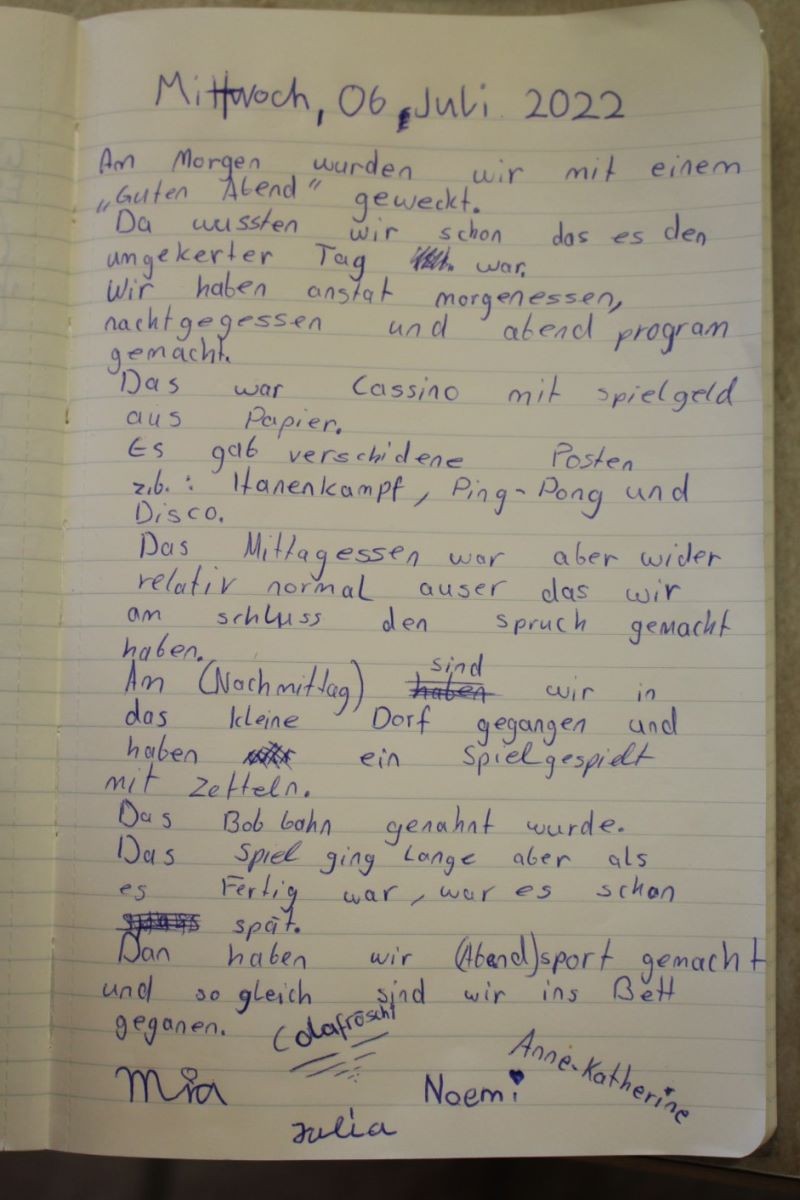 Mittwoch, 06, Juli 2022
Am Morgen wurden wir mit einem
„Guten Abend" geweckt.
Da wussten wir schon das es den
umgekerter Tag war.
Wir haben anstat morgenessen,
nachtgegessen und abend program
gemacht.
Das war Cassino mit spielgeld
aus Papier.
Es gab verschidene Posten
z.b. : Hanenkampf, Ping-Pong und
Disco.
Das Mittagessen war aber wider
relativ normal auser das wir
am schluss den spruch gemacht
haben.
sind
Am (Nachmittag) haben wir in
das kleine Dorf gegangen und
haben ein Spiel gespielt
mit Zetteln.
Das Bob bahn genahnt wurde.
Das Spiel ging Lange aber als
es Fertig war, war es schon
spät.
Dan haben wir (Abend)sport gemacht
und so gleich sind wir ins Bett
geganen.
Colafröschi
Anne-Katherine
Mia
Noemi
Julia